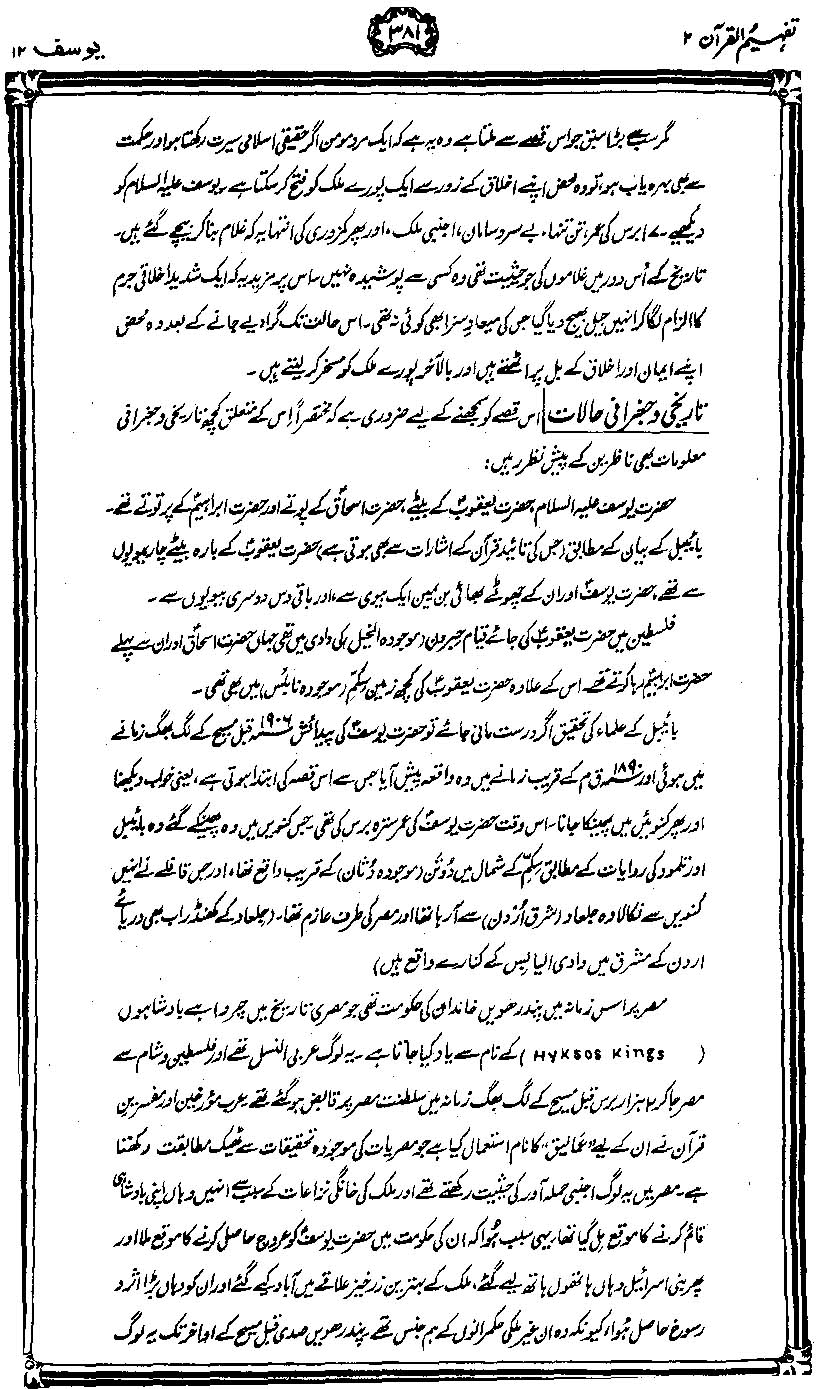 تفہیم القرآن ۲
۳۸۱
یوسف ۱۲
مگر سب سے بڑا سبق جو اس قصے سے ملتا ہے وہ یہ ہے کہ ایک مرد مومن اگر حقیقی اسلامی سیرت رکھتا ہو اور حکمت
سے بھی بہرہ یاب ہو، تو وہ محض اپنے اخلاق کے زور سے ایک پورے ملک کو فتح کر سکتا ہے۔ یوسف علیہ السلام کو
دیکھیے۔ ۱۷ برس کی عمر، تن تنہا، بے سروسامان، اجنبی ملک، اور پھر کمزوری کی انتہا یہ کہ غلام بنا کر بیچے گئے ہیں۔
تاریخ کے اُس دور میں غلاموں کی جو حیثیت تھی وہ کسی سے پوشیدہ نہیں۔ اس پر مزید یہ کہ ایک شدید اخلاقی جرم
کا الزام لگا کر انہیں جیل بھیج دیا گیا جس کی میعادِ سزا بھی کوئی نہ تھی۔ اس حالت تک گرا دیے جانے کے بعد وہ محض
اپنے ایمان اور اخلاق کے بل پر اٹھتے ہیں اور بالآخر پورے ملک کو مسخر کر لیتے ہیں۔
تاریخی و جغرافی حالات اس قصے کو سمجھنے کے لیے ضروری ہے کہ مختصراً اِس کے متعلق کچھ تاریخی و جغرافی
معلومات بھی ناظرین کے پیش نظر رہیں:
حضرت یوسف علیہ السلام، حضرت یعقوبؑ کے بیٹے، حضرت اسحاقؑ کے پوتے اور حضرت ابراہیمؑ کے پرتوتے تھے۔
بائیبل کے بیان کے مطابق (جس کی تائید قرآن کے اشارات سے بھی ہوتی ہے) حضرت یعقوبؑ کے بارہ بیٹے چار بیویوں
سے تھے، حضرت یوسفؑ اور ان کے چھوٹے بھائی بن یمین ایک بیوی سے، اور باقی دس دوسری بیویوں سے۔
فلسطین میں حضرت یعقوبؑ کی جائے قیام حبرون (موجودہ الخلیل) کی وادی میں تھی جہاں حضرت اسحاقؑ اور ان سے پہلے
حضرت ابراہیمؑ رہا کرتے تھے۔ اس کے علاوہ حضرت یعقوبؑ کی کچھ زمین سِکِم (موجودہ نابلس) میں بھی تھی۔
بائیبل کے علماء کی تحقیق اگر درست مانی جائے تو حضرت یوسفؑ کی پیدائش ۱۹۰۶ قبل مسیح کے لگ بھگ زمانے
میں ہوئی اور ۱۸۹۰ ق م کے قریب زمانے میں وہ واقعہ پیش آیا جس سے اس قصہ کی ابتدا ہوتی ہے، یعنی خواب دیکھنا
اور پھر کنوئیں میں پھینکا جانا۔ اس وقت حضرت یوسفؑ کی عمر سترہ برس کی تھی۔ جس کنویں میں وہ پھینکے گئے وہ بائیبل
اور تلمود کی روایات کے مطابق سِکِم کے شمال میں دوتن (موجودہ دُثان) کے قریب واقع تھا، اور جس قافلے نے انہیں
کنویں سے نکالا وہ جلعاد (شرق اُردن) سے آرہا تھا اور مصر کی طرف عازم تھا۔ (جلعاد کے کھنڈر اب بھی دریائے
اردن کے مشرق میں وادی الیابِس کے کنارے واقع ہیں)
مصر پر اس زمانہ میں پندرھویں خاندان کی حکومت تھی جو مصری تاریخ میں چرواہے بادشاہوں
( Hyksos Kings ) کے نام سے یاد کیا جاتا ہے۔ یہ لوگ عربی النسل تھے اور فلسطین و شام سے
مصر جا کر ۲ ہزار برس قبل مسیح کے لگ بھگ زمانہ میں سلطنت مصر پر قابض ہو گئے تھے۔ عرب مورخین اور مفسرین
قرآن نے ان کے لیے "عمالیق" کا نام استعمال کیا ہے جو مصریات کی موجودہ تحقیقات سے ٹھیک مطابقت رکھتا
ہے۔ مصر میں یہ لوگ اجنبی حملہ آور کی حیثیت رکھتے تھے اور ملک کی خانگی نزاعات کے سبب سے انہیں وہاں اپنی بادشاہی
قائم کرنے کا موقع مل گیا تھا۔ یہی سبب ہوا کہ ان کی حکومت میں حضرت یوسفؑ کو عروج حاصل کرنے کا موقع ملا اور
پھر بنی اسرائیل وہاں ہاتھوں ہاتھ لیے گئے، ملک کے بہترین زرخیز علاقے میں آباد کیے گئے اور ان کو وہاں بڑا اثر و
رسوخ حاصل ہوا، کیونکہ وہ ان غیر ملکی حکمرانوں کے ہم جنس تھے۔ پندرھویں صدی قبل مسیح کے اواخر تک یہ لوگ